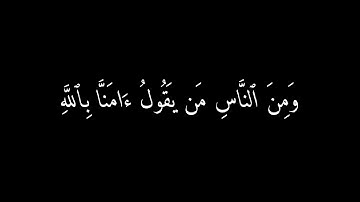 وَمِنَ ٱلنَّاسِ مَن يَقُولُ ءَامَنَّا بِٱللَّهِ